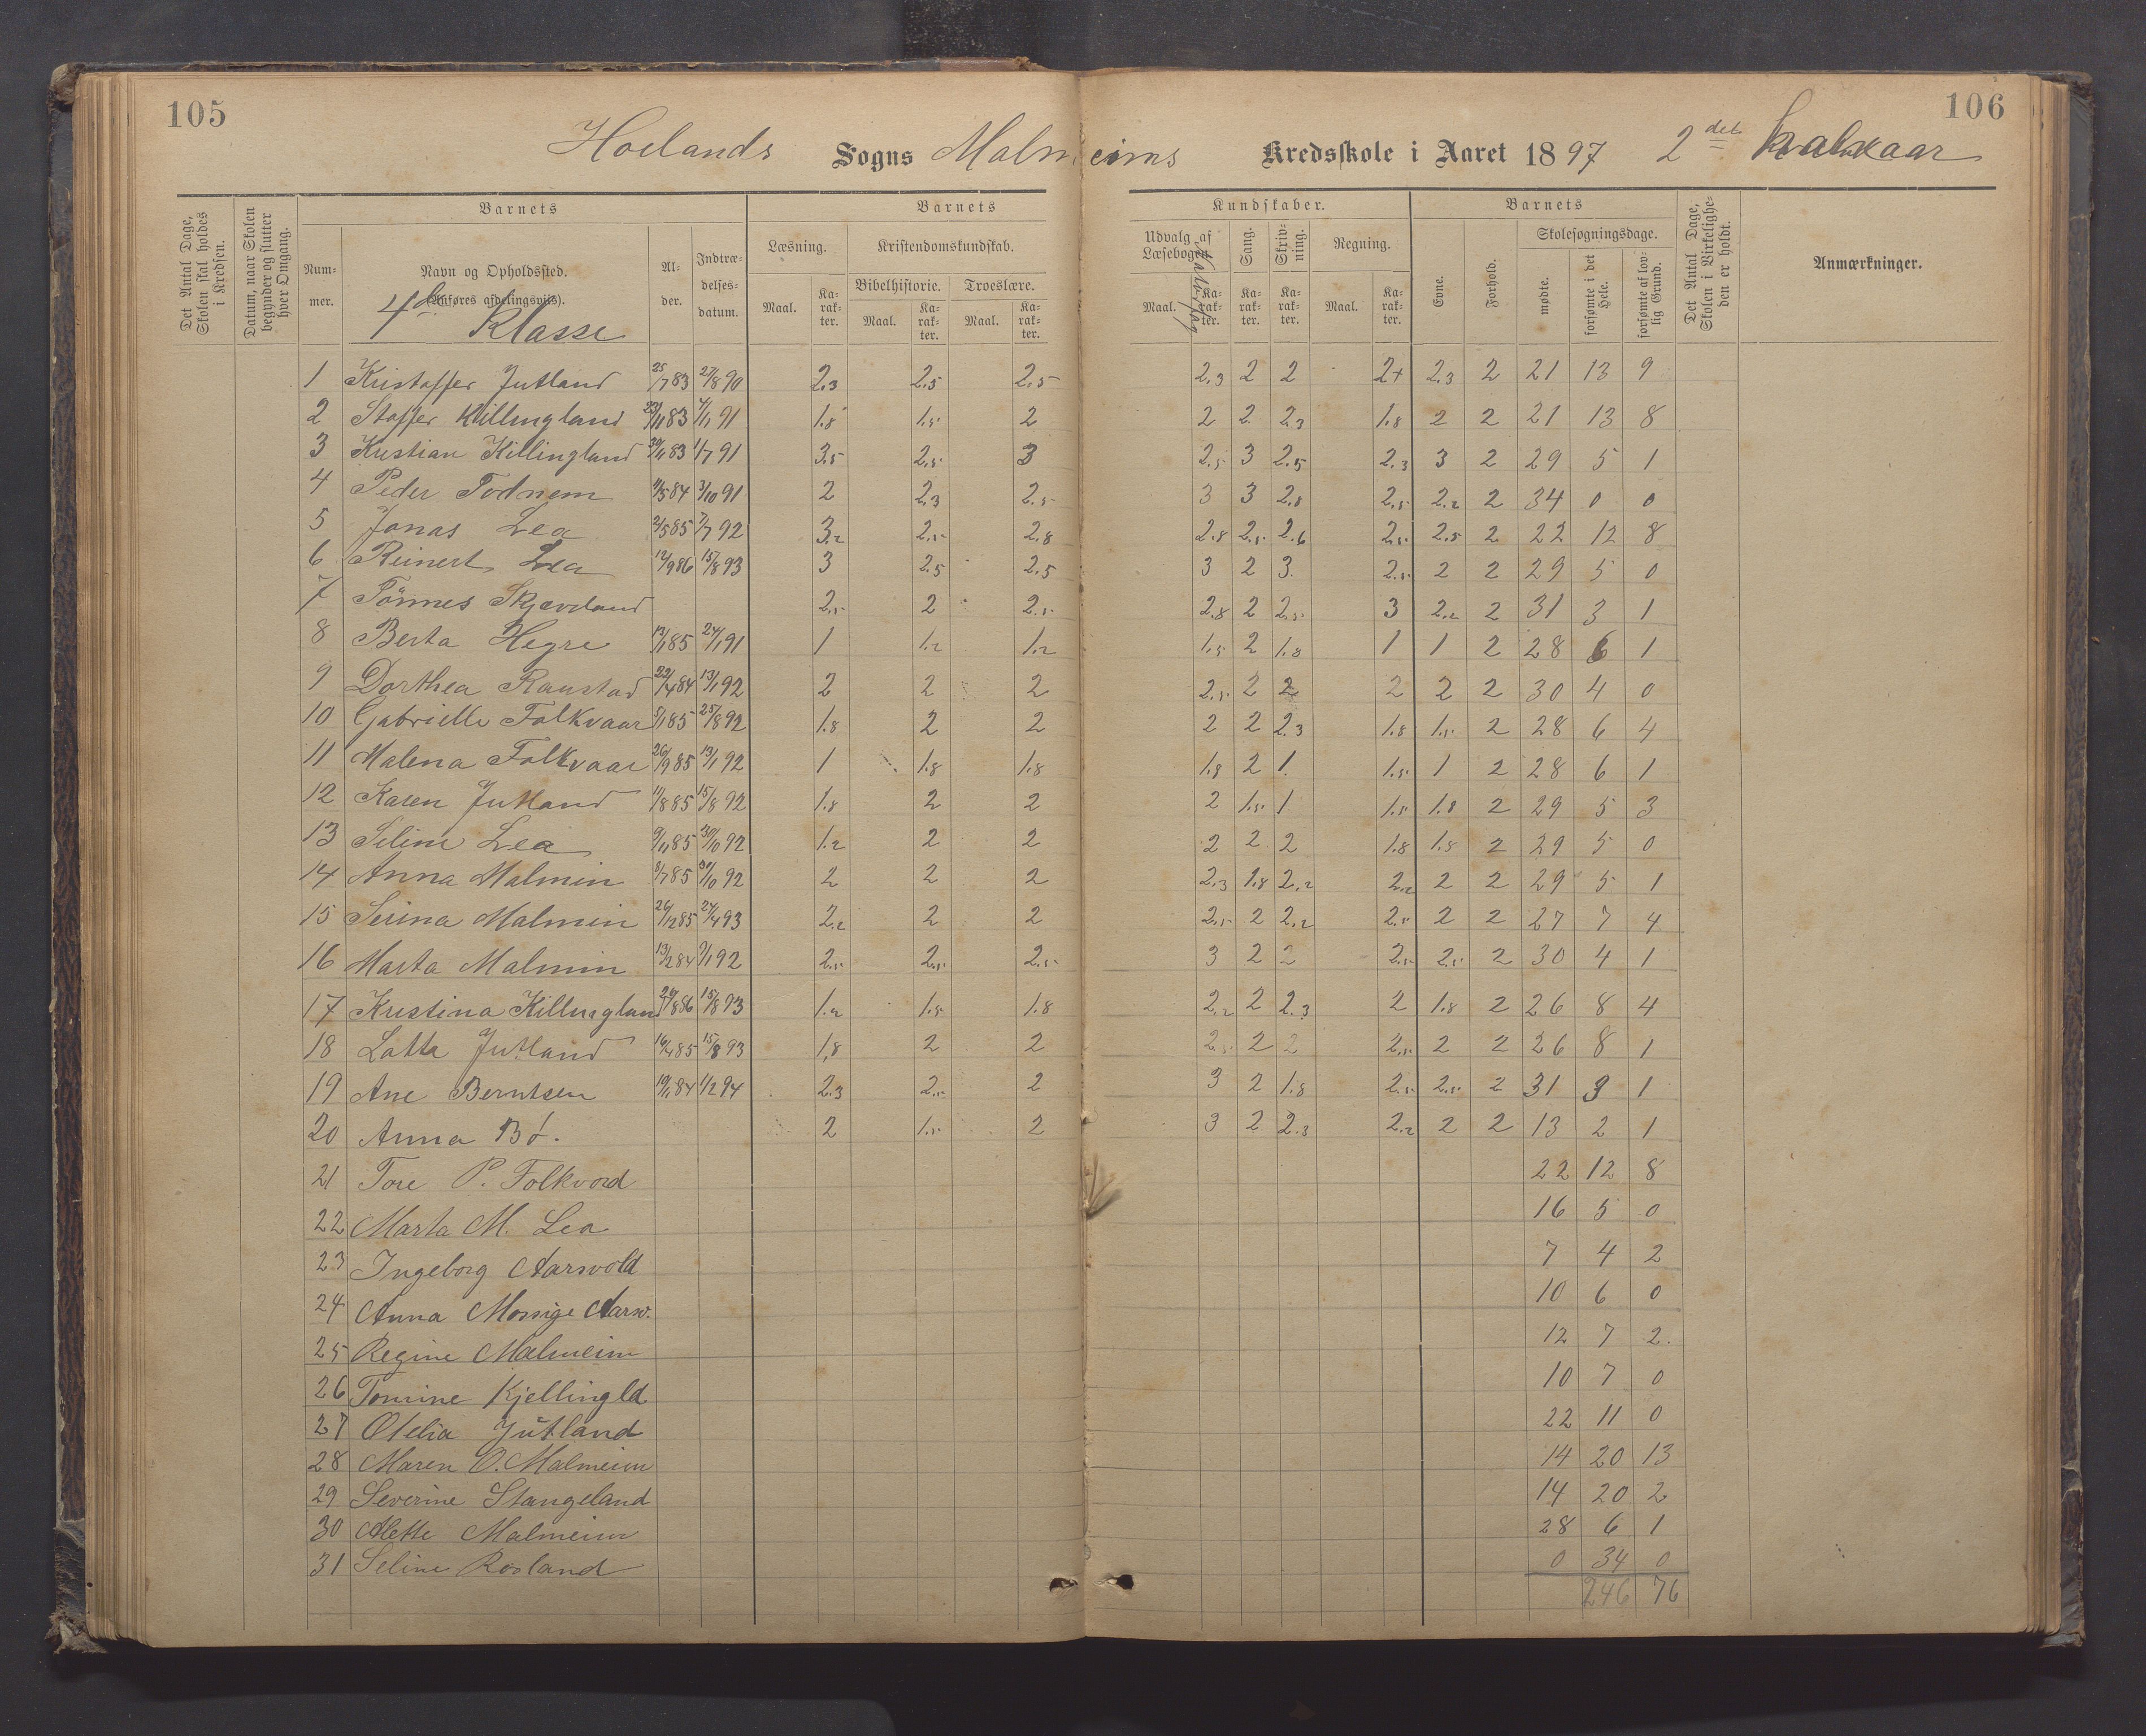 105
106
Hoilands Sogns Malmeims Kredsskole i Aaret 1897 2det halvaar
Det Antal Dage, Skolen skal holdes i Kredsen.
Datum, naar Skolen begynder og slutter hver Omgang.
Barnets
Nummer.
Navn og Opholdssted.
(Anføres afdelingsvis).
4de Klasse
Alder.
Indtrædelses-datum.
Barnets
Kundskaber.
Læsning.
Kristendomskundskab.
Bibelhistorie.
Troeslære.
Maal.
Karakter.
Maal.
Karakter.
Maal.
Karakter.
Udvalg af Læsebogen.
Maal.
Karakter.
Sang.
Karakter.
Skrivning.
Karakter.
Regning.
Maal.
Karakter.
Barnets
Evne.
Forhold.
Skolesøgningsdage.
mødte.
forsømte i det Hele.
forsømte af lovlig Grund.
Det Antal Dage, Skolen i Virkeligheden er holdt.
Anmærkninger.
1 Kristoffer Jutland 25/7 83 27/8 90 2.3 2.5 2.5 2.3 2 2 2+ 2.3 2 21 13 9
2 Stoffer Killingland 23/11 83 4/1 91 1.8 1.5 2 2 2 2.3 1.8 2 2 21 13 8
3 Kristian Killingland 30/11 83 1/7 91 3.5 2.5 3 2.5 3 2.5 2.3 3 2 29 5 1
4 Peder Todnem 9/5 84 3/10 91 2 2.3 2.5 3 3 2.8 2.5 2.2 2 34 0 0
5 Jonas Lea 2/5 85 7/7 92 3.2 2.5 2.8 2.8 2.5 2.6 2.5 2.5 2 22 12 8
6 Reinert Lea 12/9 86 15/8 93 3 2.5 2.5 3 2 3. 2.5 2 2 29 5 0
7 Tönnes Skjæveland 2.5 2 2.5 2.8 2 2.5 3 2.2 2 31 3 1
8 Berta Hegre 13/1 85 24/1 91 1 1.2 1.2 1.5 2 1.8 1 1 2 28 6 1
9 Dorthea Raustad 22/4 84 13/1 92 2 2 2 2.5 2 2 2 2 2 30 4 0
10 Gabrielle Folkvaar 5/1 85 25/8 92 1.8 2 2 2 2 2.3 1.8 1.5 2 28 6 4
11 Malena Folkvaar 26/9 85 13/1 92 1 1.8 1.8 1.8 2 1. 1.5 1 2 28 6 1
12 Karen Jutland 11/8 85 15/8 92 1.8 2 2 2 1.5 1 1.5 1.8 2 29 5 3
13 Seline Lea 9/11 85 30/10 92 1.2 2 2 2 2 2 1.8 1.5 2 29 5 0
14 Anna Malmin 8/7 85 30/10 92 2 2 2 2.3 1.8 2.2 2.2 2 2 29 5 1
15 Serina Malmin 26/12 85 24/4 93 2.2 2 2 2.5 2 2.2 2.5 2 2 27 7 4
16 Marta Malmin 13/2 84 9/1 92 2.5 2.5 2.5 3 2 2 2.5 2.5 2 30 4 1
17 Kristina Killingland 26/8 86 15/8 93 1.2 1.5 1.8 2.2 2 2.3 2 1.8 2 26 8 4
18 Lotta Jutland 16/4 85 15/8 93 1,8 2 2 2.5 2 2 2.5 2 2 26 8 1
19 Ane Berntsen 19/1 84 1/2 94 2.3 2.5 2 3 2 1.8 2.5 2.5 2 31 3 1
20 Anna Bö. 2 1.5 2 3 2 2.3 2.2 2 2 13 2 1
21 Tore P. Folkvord 22 12 8
22 Marta M. Lea 16 5 0
23 Ingeborg Aarsvold 7 4 2
24 Anna Mossige Aarsv. 10 6 0
25 Regine Malmeim 12 7 2.
26 Tomine Kjellingld. 10 7 0
27 Otelia Jutland 22 11 0
28 Maren O. Malmeim 14 20 13
29 Severine Stangeland 14 20 2
30 Alette Malmeim 28 6 1
31 Seline Rosland 0 34 0
246 76